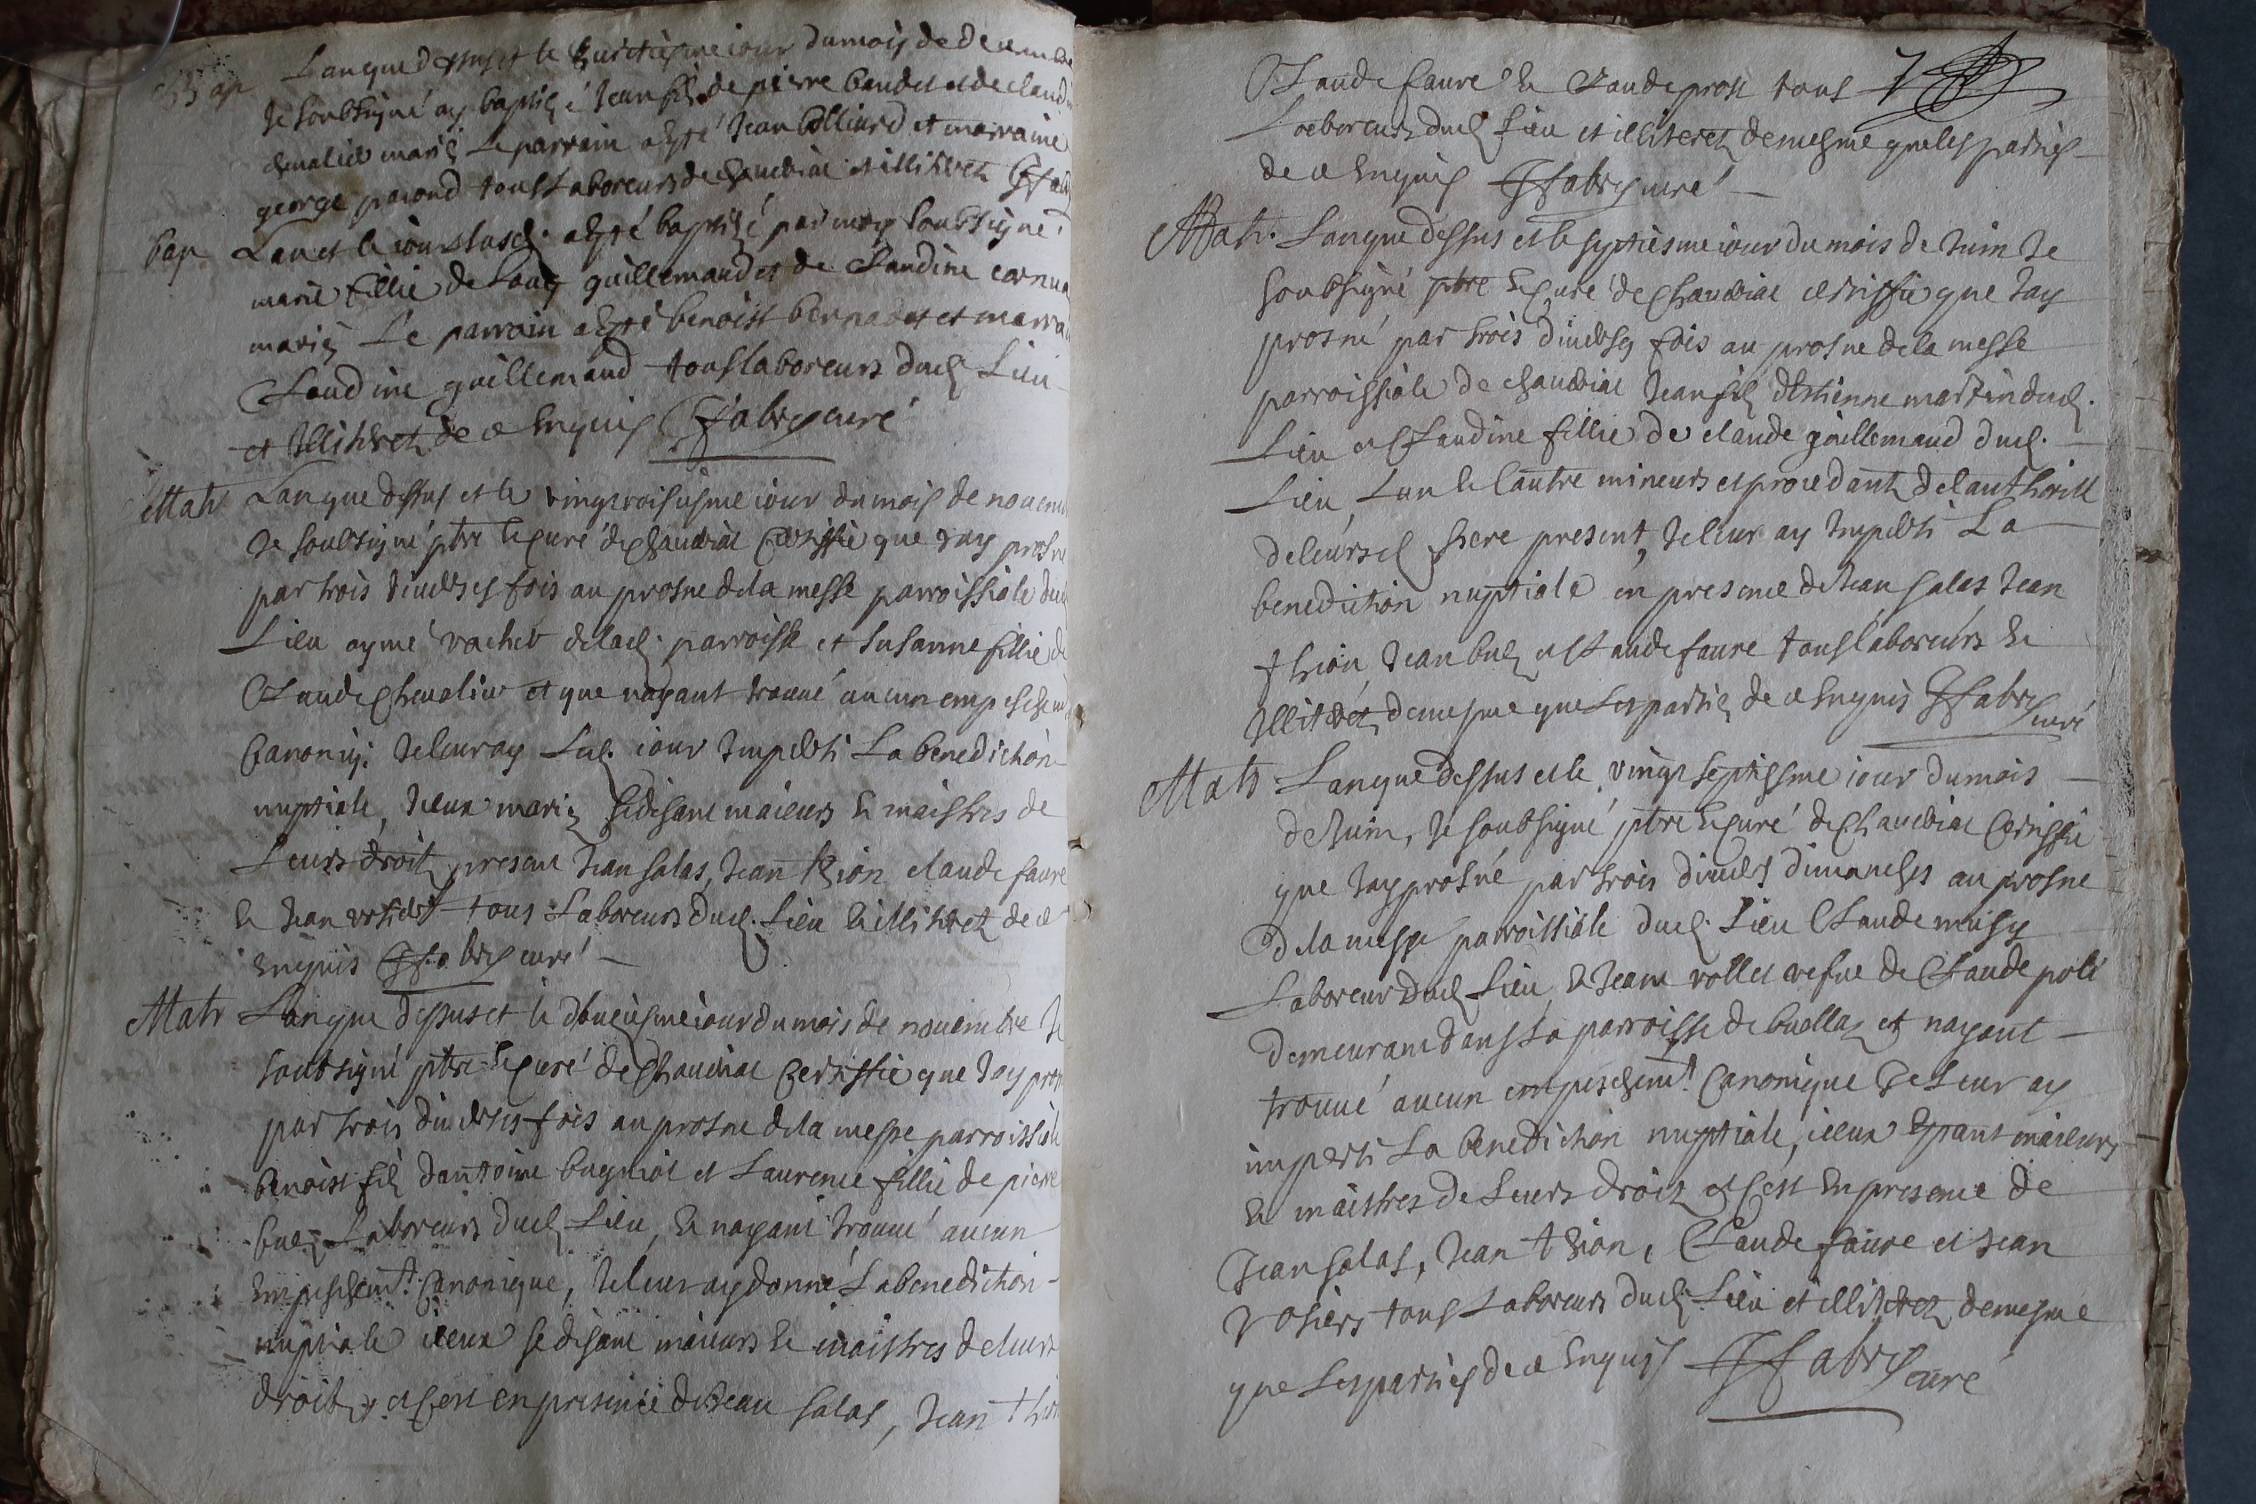 bap Lan que dessus et le huictiesme iour du mois de decembre
Je soubsigné ay baptizé Jean filz de pierre baudet et de claudine
chevalier mariez Le parrain a esté Jean Colliard et marraine
george pacoud tous Laboreurs de chaveiriat et illiterez GFabry
bap Lan et le iour susd. a esté baptizé par moy soubsigné
marie fillie de Louys guillemaud et de Claudine cornua
mariez Le parrain a esté benoist bernadet et marrai
Claudine guillemaud tous laboreurs dud. Lieu
et Illiterez de ce Enquis GFabry curé
Matr Lan que dessus et le vingtroisiesme iour du mois de novemb
Je soubsigné pbre & curé de chaveiriat Certiffie que Jay prosné
par trois diverses fois au prosne de la messe parroissiale dud
Lieu aymé vacher de lad. parroisse et Susanne fillie de
Claude chevalier et que nayant trouvé aucun empeschem
Canoniq. Je leur ay Led. iour Imperti La benediction
nuptiale, Iceux mariez se disant maieurs & maistres de
Leurs droitz present Jean salas, Jean thion claude faure
& Jean rosiers tous Laboreurs dud. Lieu & illiterez de ce
enquis GFabry curé
Matr Lan que dessus et le douziesme iour du mois de novembre Je
soubsigné pbre & curé de Chaveiriat Certiffie que Jay prosn
par trois diverses fois au prosne de la messe parroissiale
benoist filz dantoine bugniot et Laurence fillie de pierre
buez Laboreurs dud. Lieu, & nayant trouvé aucun
Empeschemt. Canonique, Je leur ay donné La benediction
nuptiale iceux se disant maieurs & maistres de leurs
droitz, et Cest en presence de Jean salas, Jean thion
Claude faure & Claude prost tous 7
Laboreurs dud. Lieu et illiterez de mesme que les parties
de ce Enquis GFabry curé
Matr. Lan que dessus et le septiesme iour du mois de Juin Je
soubsigné pbre & curé de Chaveiriat certiffie que Jay
prosné par trois diverses fois au prosne de la messe
parroissiale de chaveiriat Jean filz dEstienne martin dud.
Lieu et Claudine fillie de claude guillemaud dud.
Lieu, Lun & lautre mineurs et procedantz de lauthorité
de leursd. pere present, Je leur ay Imperti La
benediction nuptiale en presence de Jean salas Jean
thion, Jean buez et Claude faure tous laboreurs &
Illiterez de mesme que Les partiez de ce Enquis GFabry
curé
Matr Lan que dessus et le vingt septiesme iour du mois
de Juin, Je soubsigné pbre & curé de chaveiriat Certiffie
que Jay prosné par trois divers dimanches au prosne
de la messe parroissiale dud. Lieu Claude musy
Laboreur dud. Lieu & Jeane rollet vefve de Claude poli
demeurant dans La parroisse de buellaz et nayant
trouvé aucun empeschemt. Canonique Je Leur ay
imperti La benediction nuptiale, iceux Estant maieurs
& maistres de Leurs droitz et Cest En presence de
Jean salas, Jean thion, Claude faure et Jean
rosiers tous Laboreurs dud. Lieu et illiterez de mesme
que Les parties de ce Enquis GFabry curé